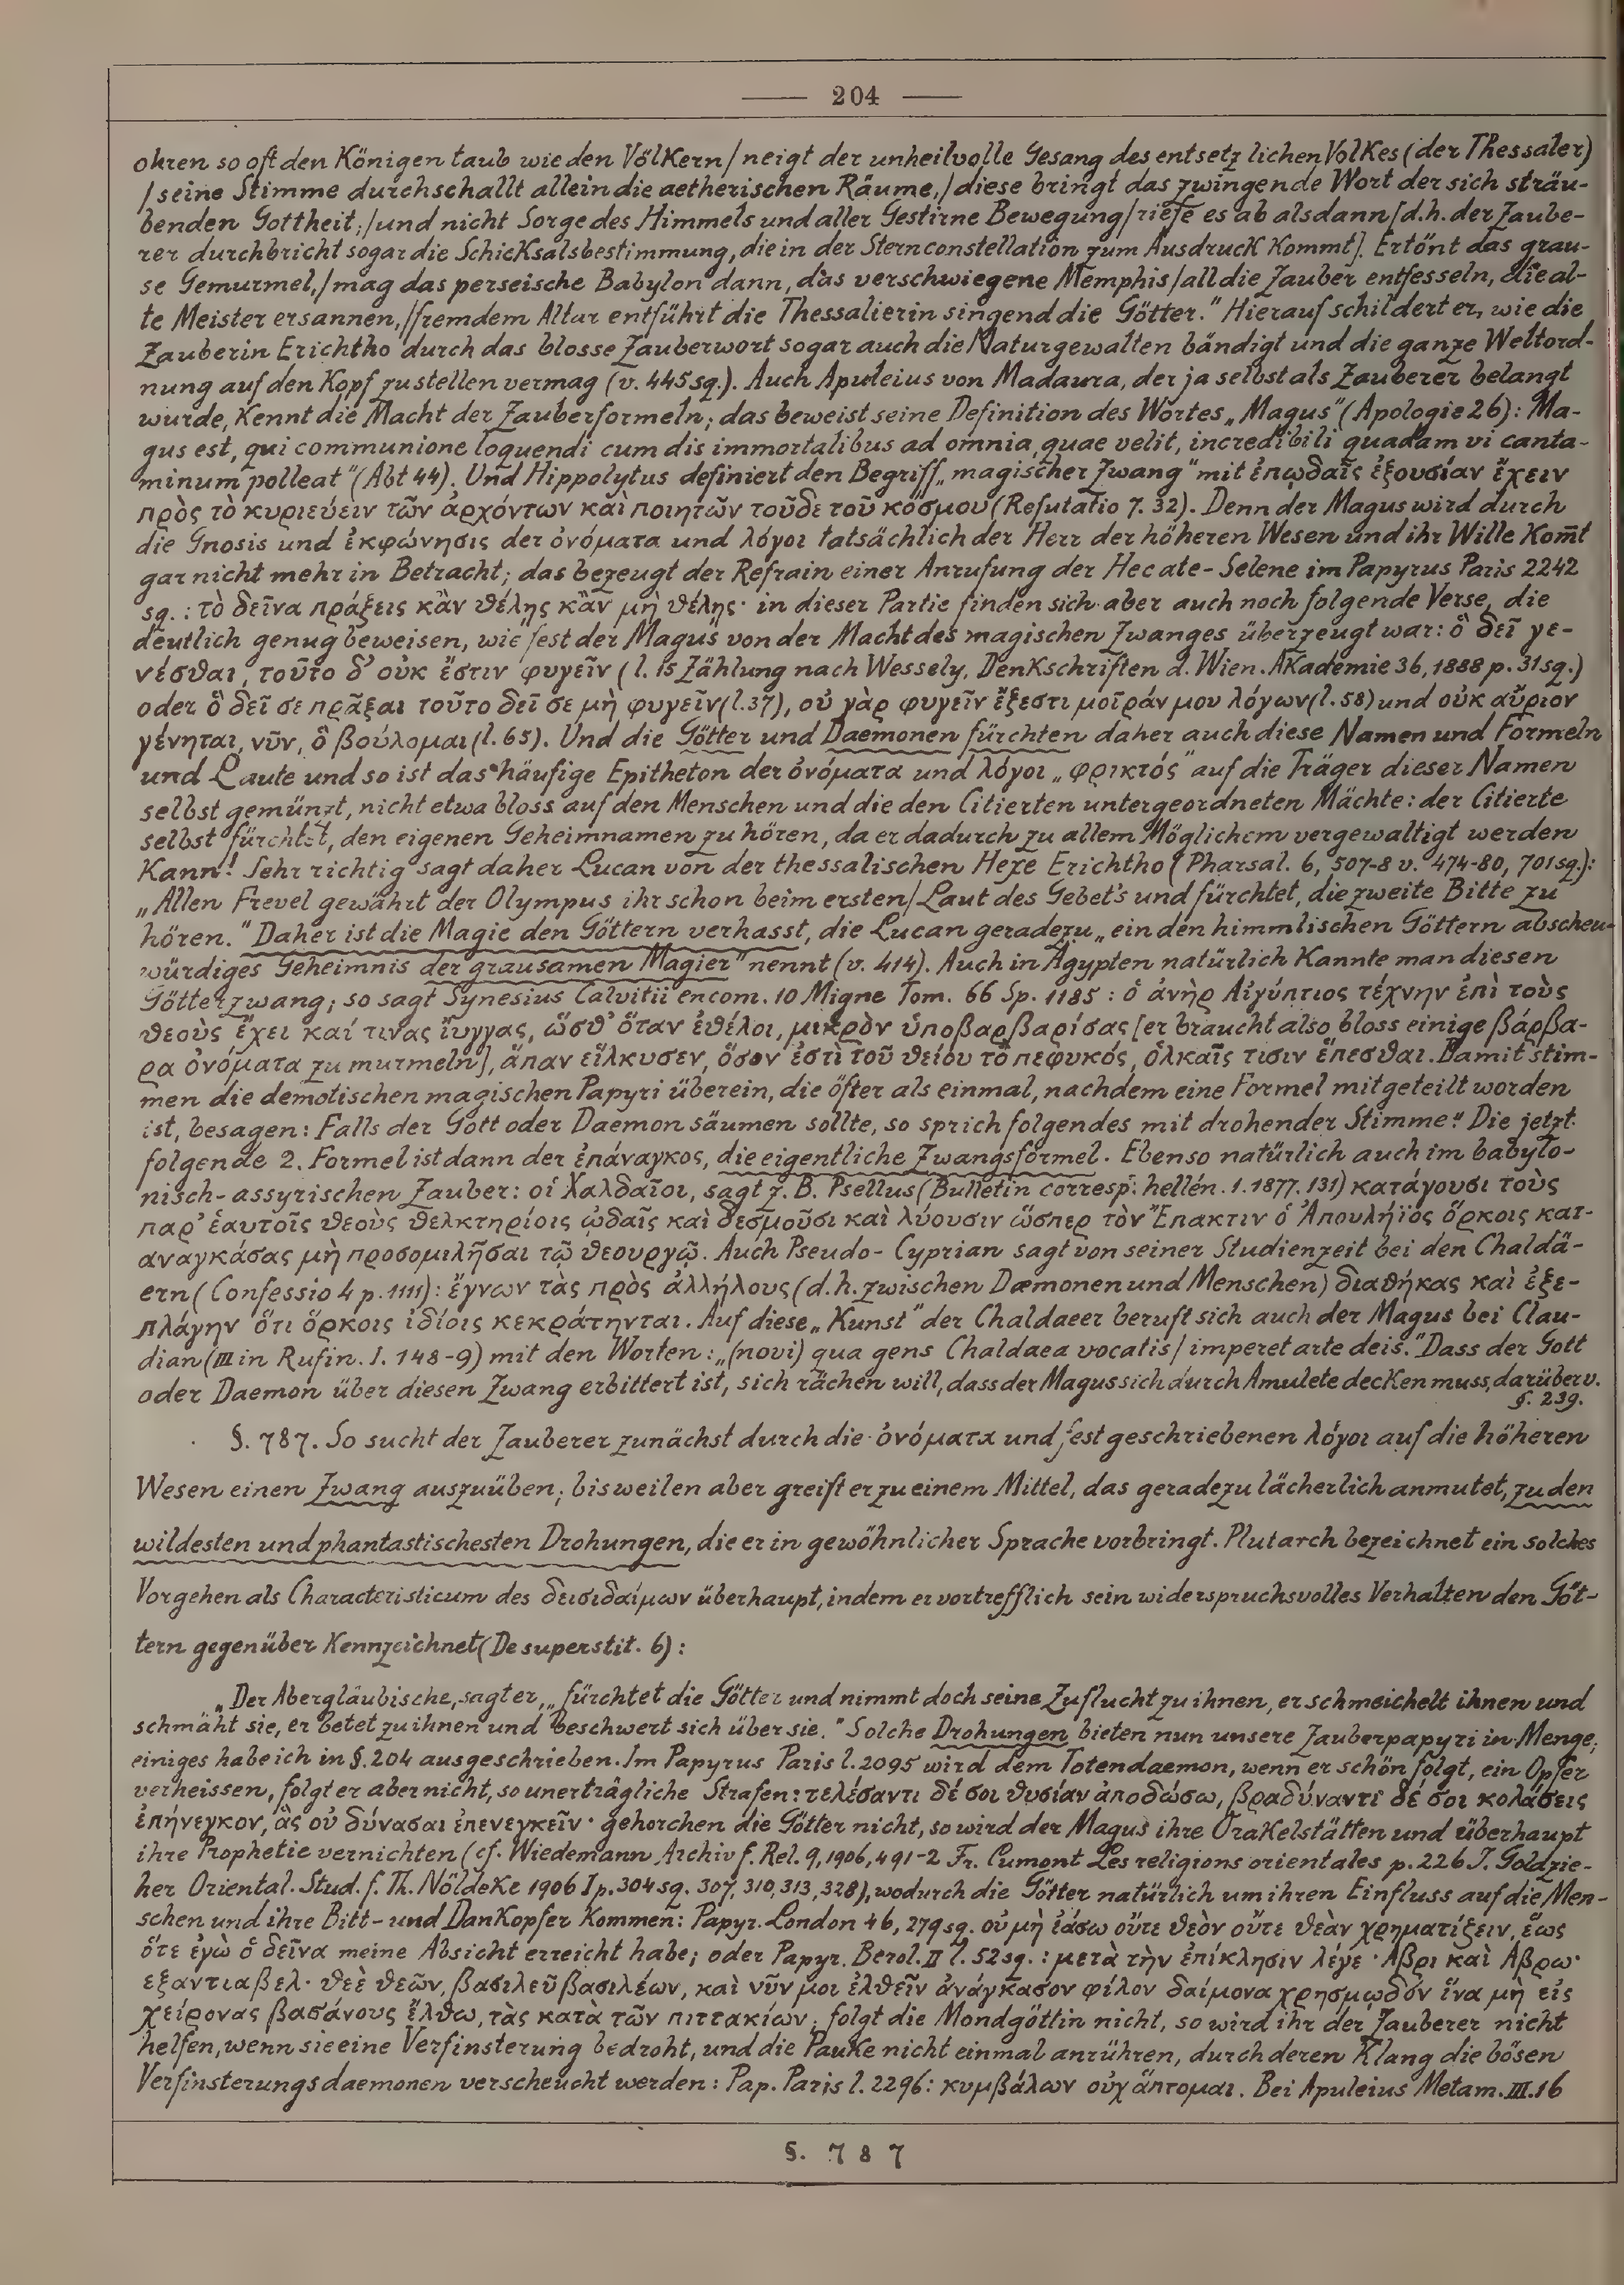 — 204 —
ohren so oft den Königen taub wie den Völkern/neigt der unheilvolle Gesang des entsetzlichen Volkes (der Thessaler)
/seine Stimme durchschallt allein die aetherischen Räume,/diese bringt das zwingende Wort der sich sträu-
benden Gottheit,/und nicht Sorge des Himmels und aller Gestirne Bewegung/riefe es ab alsdann [d.h. der Zaube-
rer durchbricht sogar die Schicksalsbestimmung, die in der Sternconstellation zum Ausdruck kommt]. Ertönt das grau-
se Gemurmel,/mag das perseische Babylon dann, das verschwiegene Memphis/all die Zauber entfesseln, die al-
te Meister ersannen,/fremdem Altar entführt die Thessalierin singend die Götter." Hierauf schildert er, wie die
Zauberin Erichtho durch das blosse Zauberwort sogar auch die Naturgewalten bändigt und die ganze Weltord-
nung auf den Kopf zu stellen vermag (v. 445 sq.). Auch Apuleius von Madaura, der ja selbst als Zauberer belangt
wurde, kennt die Macht der Zauberformeln; das beweist seine Definition des Wortes „Magus" (Apologie 26): Ma-
gus est, qui communione loquendi cum dis immortalibus ad omnia, quae velit, incredibili quadam vi canta-
minum polleat" (Abt 44). Und Hippolytus definiert den Begriff „magischer Zwang" mit ἐπῳδαῖς ἐξουσίαν ἔχειν
πρὸς τὸ κυριεύειν τῶν ἀρχόντων καὶ ποιητῶν τοῦδε τοῦ κόσμου (Refutatio 7. 32). Denn der Magus wird durch
die Gnosis und ἐκφώνησις der ὀνόματα und λόγοι tatsächlich der Herr der höheren Wesen und ihr Wille kom̄t
gar nicht mehr in Betracht; das bezeugt der Refrain einer Anrufung der Hecate-Selene im Papyrus Paris 2242
sq.: τὸ δεῖνα πράξεις κἂν θέλῃς κἂν μὴ θέλῃς· in dieser Partie finden sich aber auch noch folgende Verse, die
deutlich genug beweisen, wie fest der Magus von der Macht des magischen Zwanges überzeugt war: ὃ δεῖ γε-
νέσθαι, τοῦτο δ' οὐκ ἔστιν φυγεῖν (l. 15 Zählung nach Wessely, Denkschriften d. Wien. Akademie 36, 1888 p. 31 sq.)
oder ὃ δεῖ σε πρᾶξαι τοῦτο δεῖ σε μὴ φυγεῖν (l. 37), οὐ γὰρ φυγεῖν ἔξεστι μοῖράν μου λόγων (l. 58) und οὐκ αὔριον
γένηται, νῦν, ὃ βούλομαι (l. 65). Und die Götter und Daemonen fürchten daher auch diese Namen und Formeln
und Laute und so ist das häufige Epitheton der ὀνόματα und λόγοι „φρικτός" auf die Träger dieser Namen
selbst gemünzt, nicht etwa bloss auf den Menschen und die den Citierten untergeordneten Mächte: der Citierte
selbst fürchtet, den eigenen Geheimnamen zu hören, da er dadurch zu allem Möglichem vergewaltigt werden
kann! Sehr richtig sagt daher Lucan von der thessalischen Hexe Erichtho (Pharsal. 6, 507-8 v. 474-80, 701 sq.):
„Allen Frevel gewährt der Olympus ihr schon beim ersten/Laut des Gebet's und fürchtet, die zweite Bitte zu
hören." Daher ist die Magie den Göttern verhasst, die Lucan geradezu „ein den himmlischen Göttern abscheu-
würdiges Geheimnis der grausamen Magier" nennt (v. 414). Auch in Ägypten natürlich kannte man diesen
Götterzwang; so sagt Synesius Calvitii encom. 10 Migne Tom. 66 Sp. 1185: ὁ ἀνὴρ Αἰγύπτιος τέχνην ἐπὶ τοὺς
θεοὺς ἔχει καί τινας ἴυγγας, ὥσθ' ὅταν ἐθέλοι, μικρὸν ὑποβαρβαρίσας [er braucht also bloss einige βάρβα-
ρα ὀνόματα zu murmeln], ἅπαν εἵλκυσεν, ὅσον ἐστὶ τοῦ θείου τὸ πεφυκός, ὁλκαῖς τισιν ἕπεσθαι. Damit stim-
men die demotischen magischen Papyri überein, die öfter als einmal, nachdem eine Formel mitgeteilt worden
ist, besagen: Falls der Gott oder Daemon säumen sollte, so sprich folgendes mit drohender Stimme." Die jetzt
folgende 2. Formel ist dann der ἐπάναγκος, die eigentliche Zwangsformel. Ebenso natürlich auch im babylo-
nisch-assyrischen Zauber: οἱ Χαλδαῖοι, sagt z. B. Psellus (Bulletin corresp. hellén. 1. 1877. 131) κατάγουσι τοὺς
παρ' ἑαυτοῖς θεοὺς θελκτηρίοις ᾠδαῖς καὶ δεσμοῦσι καὶ λύουσιν ὥσπερ τὸν Ἔπακτιν ὁ Ἀπουλήϊος ὅρκοις κατ-
αναγκάσας μὴ προσομιλῆσαι τῷ θεουργῷ. Auch Pseudo-Cyprian sagt von seiner Studienzeit bei den Chaldä-
ern (Confessio 4 p. 1111): ἔγνων τὰς πρὸς ἀλλήλους (d.h. zwischen Dæmonen und Menschen) διαθήκας καὶ ἐξε-
πλάγην ὅτι ὅρκοις ἰδίοις κεκράτηνται. Auf diese „Kunst" der Chaldaeer beruft sich auch der Magus bei Clau-
dian (III in Rufin. I. 148-9) mit den Worten: „(novi) qua gens Chaldaea vocatis/imperet arte deis." Dass der Gott
oder Daemon über diesen Zwang erbittert ist, sich rächen will, dass der Magus sich durch Amulete decken muss, darüber v.
§. 239.
§. 787. So sucht der Zauberer zunächst durch die ὀνόματα und fest geschriebenen λόγοι auf die höheren
Wesen einen Zwang auszuüben; bisweilen aber greift er zu einem Mittel, das geradezu lächerlich anmutet, zu den
wildesten und phantastischesten Drohungen, die er in gewöhnlicher Sprache vorbringt. Plutarch bezeichnet ein solches
Vorgehen als Characteristicum des δεισιδαίμων überhaupt, indem er vortrefflich sein widerspruchsvolles Verhalten den Göt-
tern gegenüber kennzeichnet (De superstit. 6):
„Der Abergläubische, sagt er, „fürchtet die Götter und nimmt doch seine Zuflucht zu ihnen, er schmeichelt ihnen und
schmäht sie, er betet zu ihnen und beschwert sich über sie." Solche Drohungen bieten nun unsere Zauberpapyri in Menge;
einiges habe ich in §. 204 ausgeschrieben. Im Papyrus Paris l. 2095 wird dem Totendaemon, wenn er schön folgt, ein Opfer
verheissen, folgt er aber nicht, so unerträgliche Strafen: τελέσαντι δέ σοι θυσίαν ἀποδώσω, βραδύναντι δέ σοι κολάσεις
ἐπήνεγκον, ἃς οὐ δύνασαι ἐπενεγκεῖν· gehorchen die Götter nicht, so wird der Magus ihre Orakelstätten und überhaupt
ihre Prophetie vernichten (cf. Wiedemann Archiv f. Rel. 9, 1906, 491-2 Fr. Cumont Les religions orientales p. 226 J. Goldzie-
her Oriental. Stud. f. Th. Nöldeke 1906 I p. 304 sq. 307, 310, 313, 328), wodurch die Götter natürlich um ihren Einfluss auf die Men-
schen und ihre Bitt- und Dankopfer kommen: Papyr. London 46, 279 sq. οὐ μὴ ἐάσω οὔτε θεὸν οὔτε θεὰν χρηματίζειν, ἕως
ὅτε ἐγὼ ὁ δεῖνα meine Absicht erreicht habe; oder Papyr. Berol. II l. 52 sq.: μετὰ τὴν ἐπίκλησιν λέγε· Ἀβρι καὶ Ἀβρω·
εξαντιαβελ· θεὲ θεῶν, βασιλεῦ βασιλέων, καὶ νῦν μοι ἐλθεῖν ἀνάγκασον φίλον δαίμονα χρησμῳδόν ἵνα μὴ εἰς
χείρονας βασάνους ἔλθω, τὰς κατὰ τῶν πιττακίων; folgt die Mondgöttin nicht, so wird ihr der Zauberer nicht
helfen, wenn sie eine Verfinsterung bedroht, und die Pauke nicht einmal anrühren, durch deren Klang die bösen
Verfinsterungsdaemonen verscheucht werden: Pap. Paris l. 2296: κυμβάλων οὐχ ἅπτομαι. Bei Apuleius Metam. III. 16
§. 787